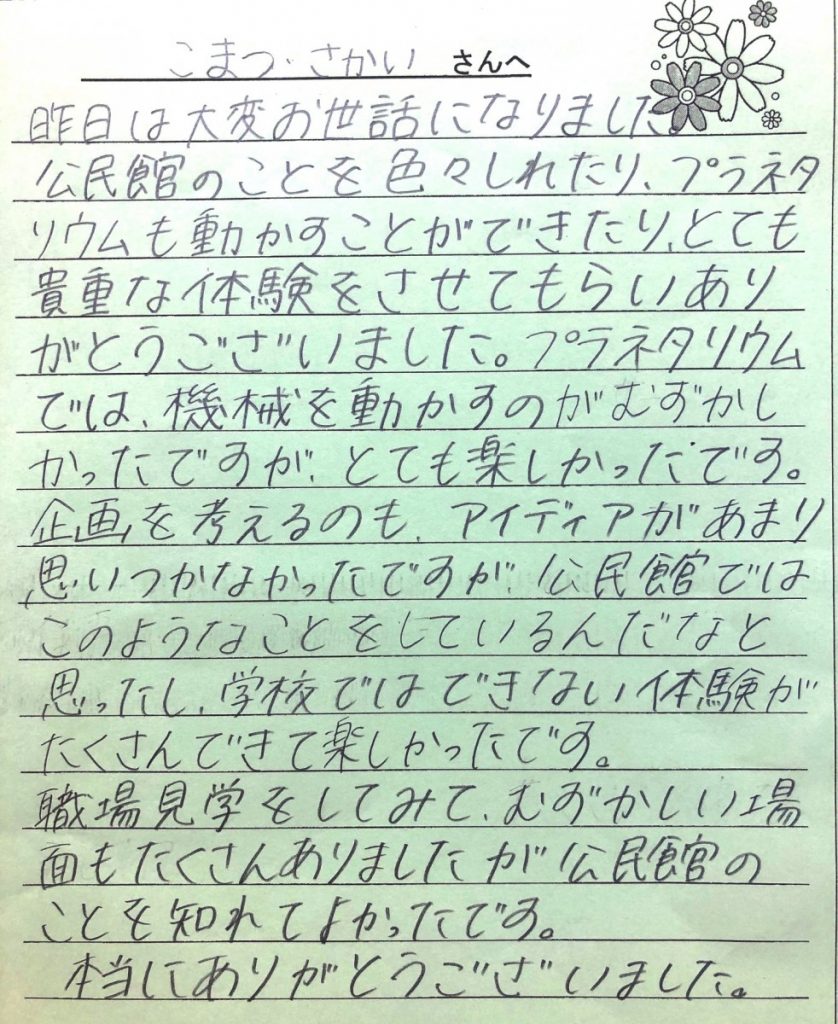 こまつ・さかい さんへ
昨日は大変お世話になりました。
公民館のことを色々しれたり、プラネタ
リウムも動かすことができたり、とても
貴重な体験をさせてもらいあり
がとうございました。プラネタリウム
では、機械を動かすのがむずかし
かったですが、とても楽しかったです。
企画を考えるのも、アイディアがあまり
思いつかなかったですが、公民館では
このようなことをしているんだなと
思ったし、学校ではできない体験が
たくさんできて楽しかったです。
職場見学をしてみて、むずかしい場
面もたくさんありましたが公民館の
ことを知れてよかったです。
本当にありがとうございました。